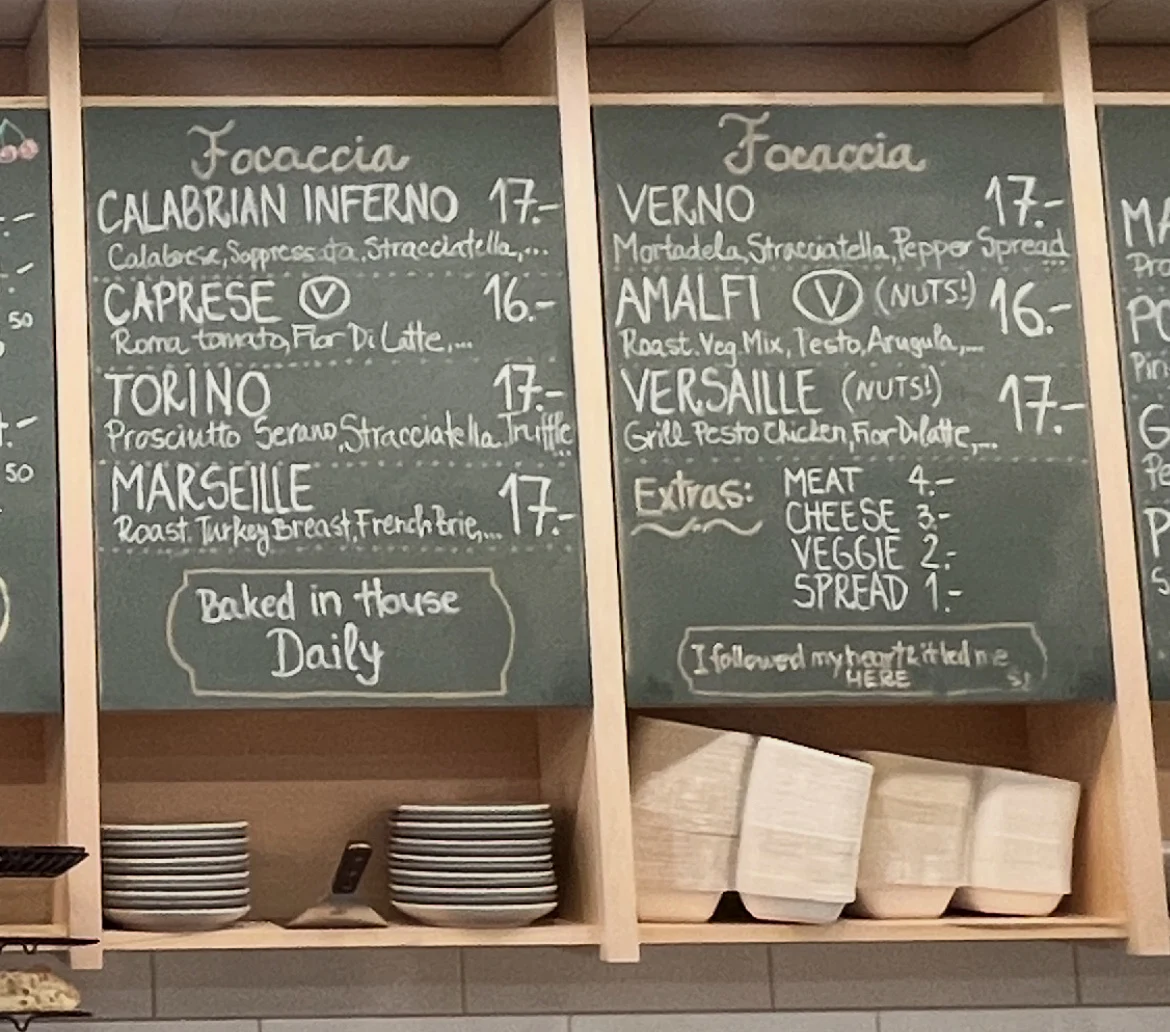 Focaccia
CALABRIAN INFERNO 17.-
Calabrese, Soppressata, Stracciatella,...
CAPRESE V 16.-
Roma tomato, Fior Di Latte,...
TORINO 17.-
Prosciutto Serano, Stracciatella. Truffle...
MARSEILLE 17.-
Roast. Turkey Breast, French Brie,...
Baked in House
Daily
Focaccia
VERNO 17.-
Mortadela, Stracciatella, Pepper Spread...
AMALFI V (NUTS!) 16.-
Roast. Veg. Mix, Pesto, Arugula,...
VERSAILLE (NUTS!) 17.-
Grill Pesto Chicken, Fior Di latte,...
Extras:
MEAT 4.-
CHEESE 3.-
VEGGIE 2.-
SPREAD 1.-
I followed my heart & it led me
HERE
50
50
MA
Pro
PO
Pin
G
Pe
P
S